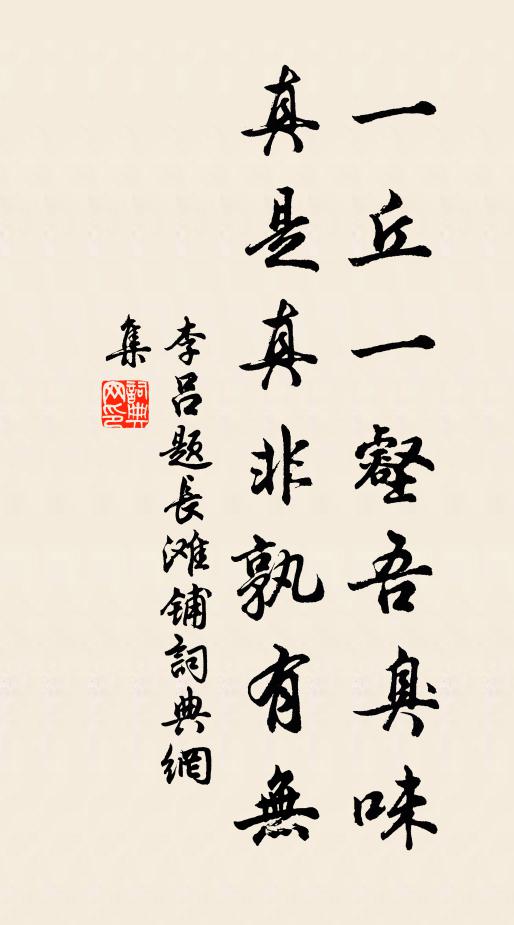 一丘一壑吾臭味
真是真非孰有無
李呂題長滩铺詞典網
集
詞典网印